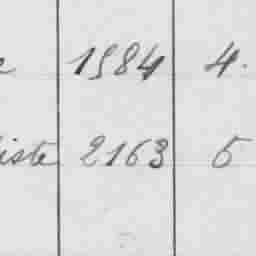 1984 4.
iste 2163 5